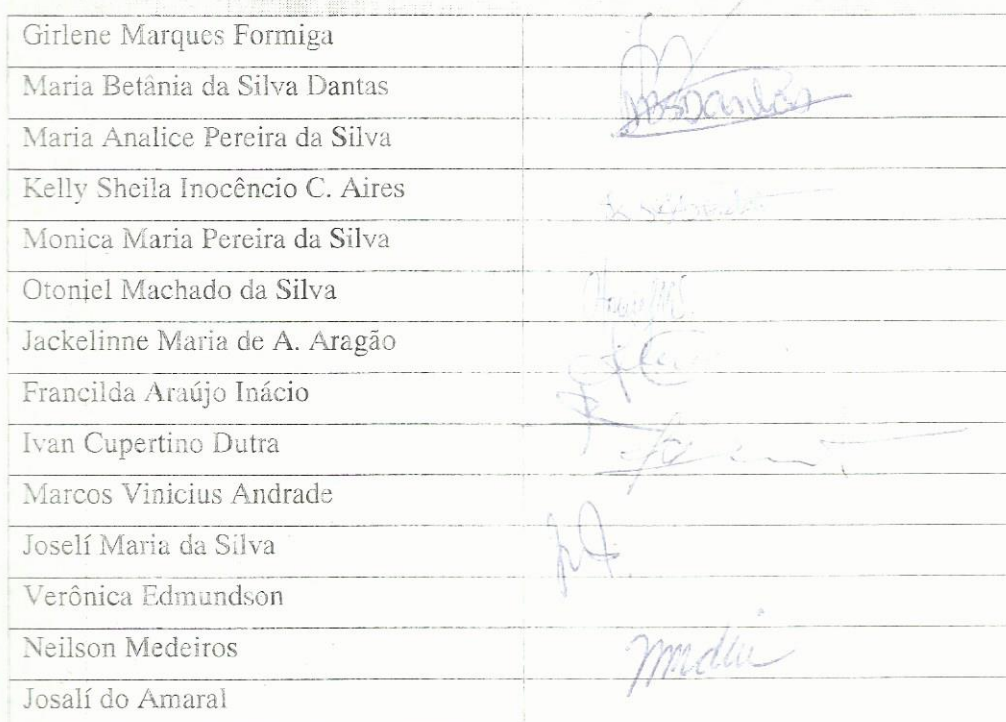 Girlene Marques Formiga
Maria Betânia da Silva Dantas
MBSDantas
Maria Analice Pereira da Silva
Kelly Sheila Inocêncio C. Aires
Monica Maria Pereira da Silva
Otoniel Machado da Silva
Jackelinne Maria de A. Aragão
Francilda Araújo Inácio
Ivan Cupertino Dutra
Marcos Vinicius Andrade
Joselí Maria da Silva
Verônica Edmundson
Neilson Medeiros
Josalí do Amaral